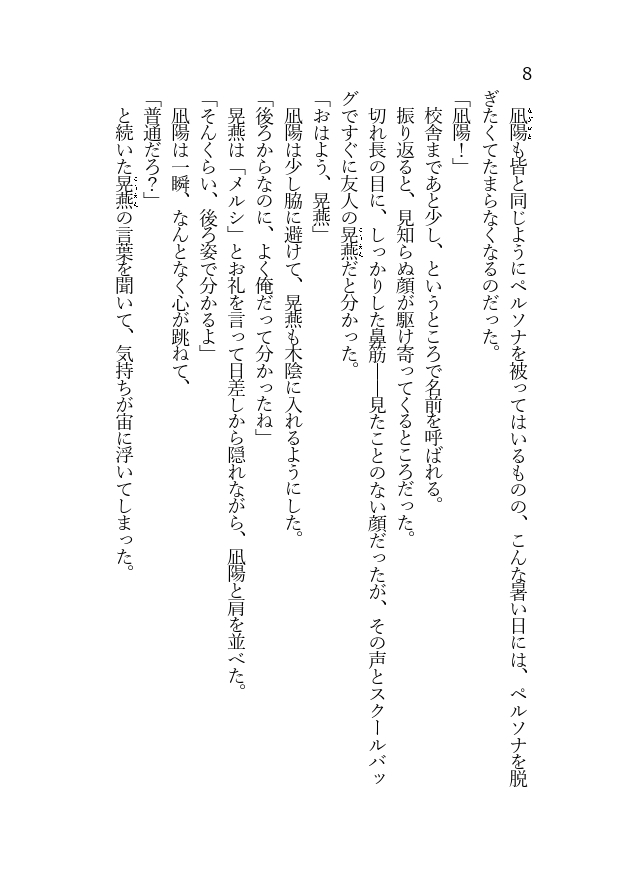 8
凪陽も皆と同じようにペルソナを被ってはいるものの、こんな暑い日には、ペルソナを脱
ぎたくてたまらなくなるのだった。
「凪陽！」
校舎まであと少し、というところで名前を呼ばれる。
振り返ると、見知らぬ顔が駆け寄ってくるところだった。
切れ長の目に、しっかりした鼻筋――見たことのない顔だったが、その声とスクールバッ
グですぐに友人の晃燕だと分かった。
「おはよう、晃燕」
凪陽は少し脇に避けて、晃燕も木陰に入れるようにした。
「後ろからなのに、よく俺だって分かったね」
晃燕は「メルシ」とお礼を言って日差しから隠れながら、凪陽と肩を並べた。
「そんくらい、後ろ姿で分かるよ」
凪陽は一瞬、なんとなく心が跳ねて、
「普通だろ？」
と続いた晃燕の言葉を聞いて、気持ちが宙に浮いてしまった。